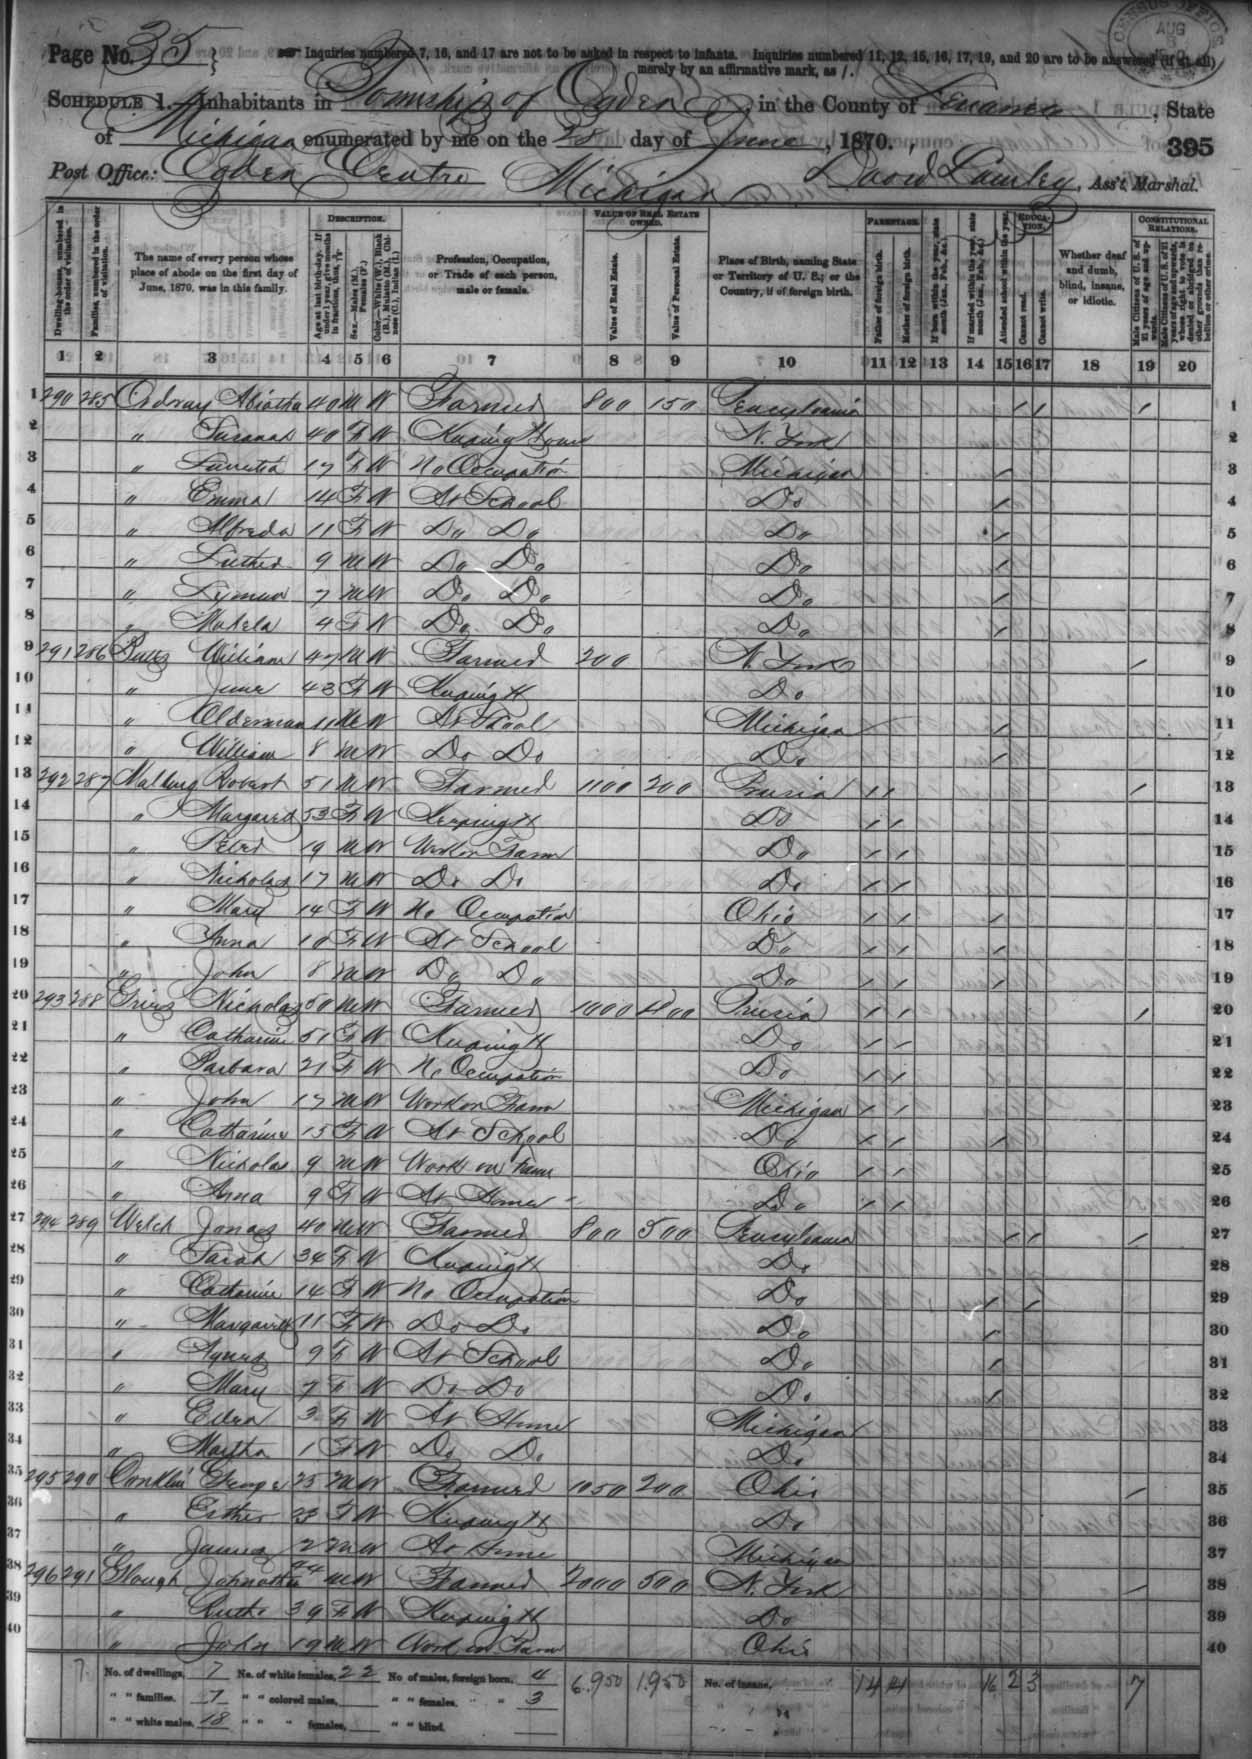 Page No. 35
Inquiries numbered 7, 16, and 17 are not to be asked in respect to infants. Inquiries numbered 11, 12, 15, 16, 17, 19, and 20 are to be answered (if at all)
merely by an affirmative mark, as /.
CENSUS OFFICE
AUG
SCHEDULE 1.—Inhabitants in Township of Ogden, in the County of Lenawee, State
of Michigan enumerated by me on the 28 day of June, 1870.
395
Post Office: Ogden Centre Michigan David Lawley, Ass't Marshal.
Dwelling-houses, numbered in the order of visitation.
Families, numbered in the order of visitation.
The name of every person whose place of abode on the first day of June, 1870, was in this family.
DESCRIPTION.
Age at last birth-day. If under 1 year, give months in fractions, thus, 3/12
Sex.—Males (M.), Females (F.)
Color.—White (W.), Black (B.), Mulatto (M.), Chinese (C.), Indian (I.)
Profession, Occupation, or Trade of each person, male or female.
VALUE OF REAL ESTATE OWNED.
Value of Real Estate.
Value of Personal Estate.
Place of Birth, naming State or Territory of U. S.; or the Country, if of foreign birth.
PARENTAGE.
Father of foreign birth.
Mother of foreign birth.
If born within the year, state month (Jan., Feb., &c.)
If married within the year, state month (Jan., Feb., &c.)
Attended school within the year.
EDUCATION.
Cannot read.
Cannot write.
Whether deaf and dumb, blind, insane, or idiotic.
CONSTITUTIONAL RELATIONS.
Male Citizens of U. S. of 21 years of age and upwards.
Male Citizens of U. S. of 21 years of age and upwards, where right to vote is denied or abridged on other grounds than rebellion or other crime.
1 2 3 4 5 6 7 8 9 10 11 12 13 14 15 16 17 18 19 20
1 290 285 Ordway 40 M W Farmer 800 150 Pencylvania / / / 1
2 " Susanah 40 F W Keeping House N. York 2
3 " 17 F W No Occupation Michigan / 3
4 " Emma 14 F W At School Do / 4
5 " Alfreda 11 F W Do Do Do / 5
6 " Luther 9 M W Do Do Do / 6
7 " Lyman 7 M W Do Do Do / 7
8 " Mahela 4 F W Do Do Do / 8
9 291 286 William 47 M W Farmer 200 N. York / 9
10 " June 43 F W Keeping H Do 10
11 " Olderman 11 M W At School Michigan / 11
12 " William 8 M W Do Do Do / 12
13 292 287 Robert 51 M W Farmer 1100 200 Prusia / / / 13
14 " Margaret 53 F W Keeping H Do / / 14
15 " Peter 19 M W Work on Farm Do / / 15
16 " Nicholas 17 M W Do Do Do / / 16
17 " Mary 14 F W No Occupation Ohio / / / 17
18 " Anna 10 F W At School Do / / / 18
19 " John 8 M W Do Do Do / / / 19
20 293 288 Nicholas 50 M W Farmer 1000 400 Prusia / / / 20
21 " Catharine 51 F W Keeping H Do / / 21
22 " Barbara 21 F W No Occupation Do / / 22
23 " John 17 M W Work on Farm Michigan / / 23
24 " Catharine 15 F W At School Do / / / 24
25 " Nicholas 9 M W Work on Farm Ohio / / 25
26 " Anna 9 F W At Home Do / / 26
27 294 289 Welch Jonas 40 M W Farmer 800 500 Pencylvania / / / 27
28 " Sarah 34 F W Keeping H Do 28
29 " Catharine 14 F W No Occupation Do / / 29
30 " Margarett 11 F W Do Do Do / 30
31 " Agnes 9 F W At School Do / 31
32 " Mary 7 F W Do Do Do / 32
33 " 3 F W At Home Michigan 33
34 " Martha 1 F W Do Do Do 34
35 295 290 Conklin George 25 M W Farmer 1050 200 Ohio / 35
36 " Esther 23 F W Keeping H Do 36
37 " James 2 M W At Home Michigan 37
38 296 291 Johnathan 44 M W Farmer 2000 500 N. York / 38
39 " Ruth 39 F W Keeping H Do 39
40 " John 19 M W Work on Farm Ohio 40
7 No. of dwellings, 7 No. of white females, 22 No of males, foreign born, 4 6.950 1.950 No. of insane, 14 14 16 2 3 7
" " families, 7 " " colored males, " " females, " " 3
" " white males, 18 " " " females, " " blind.